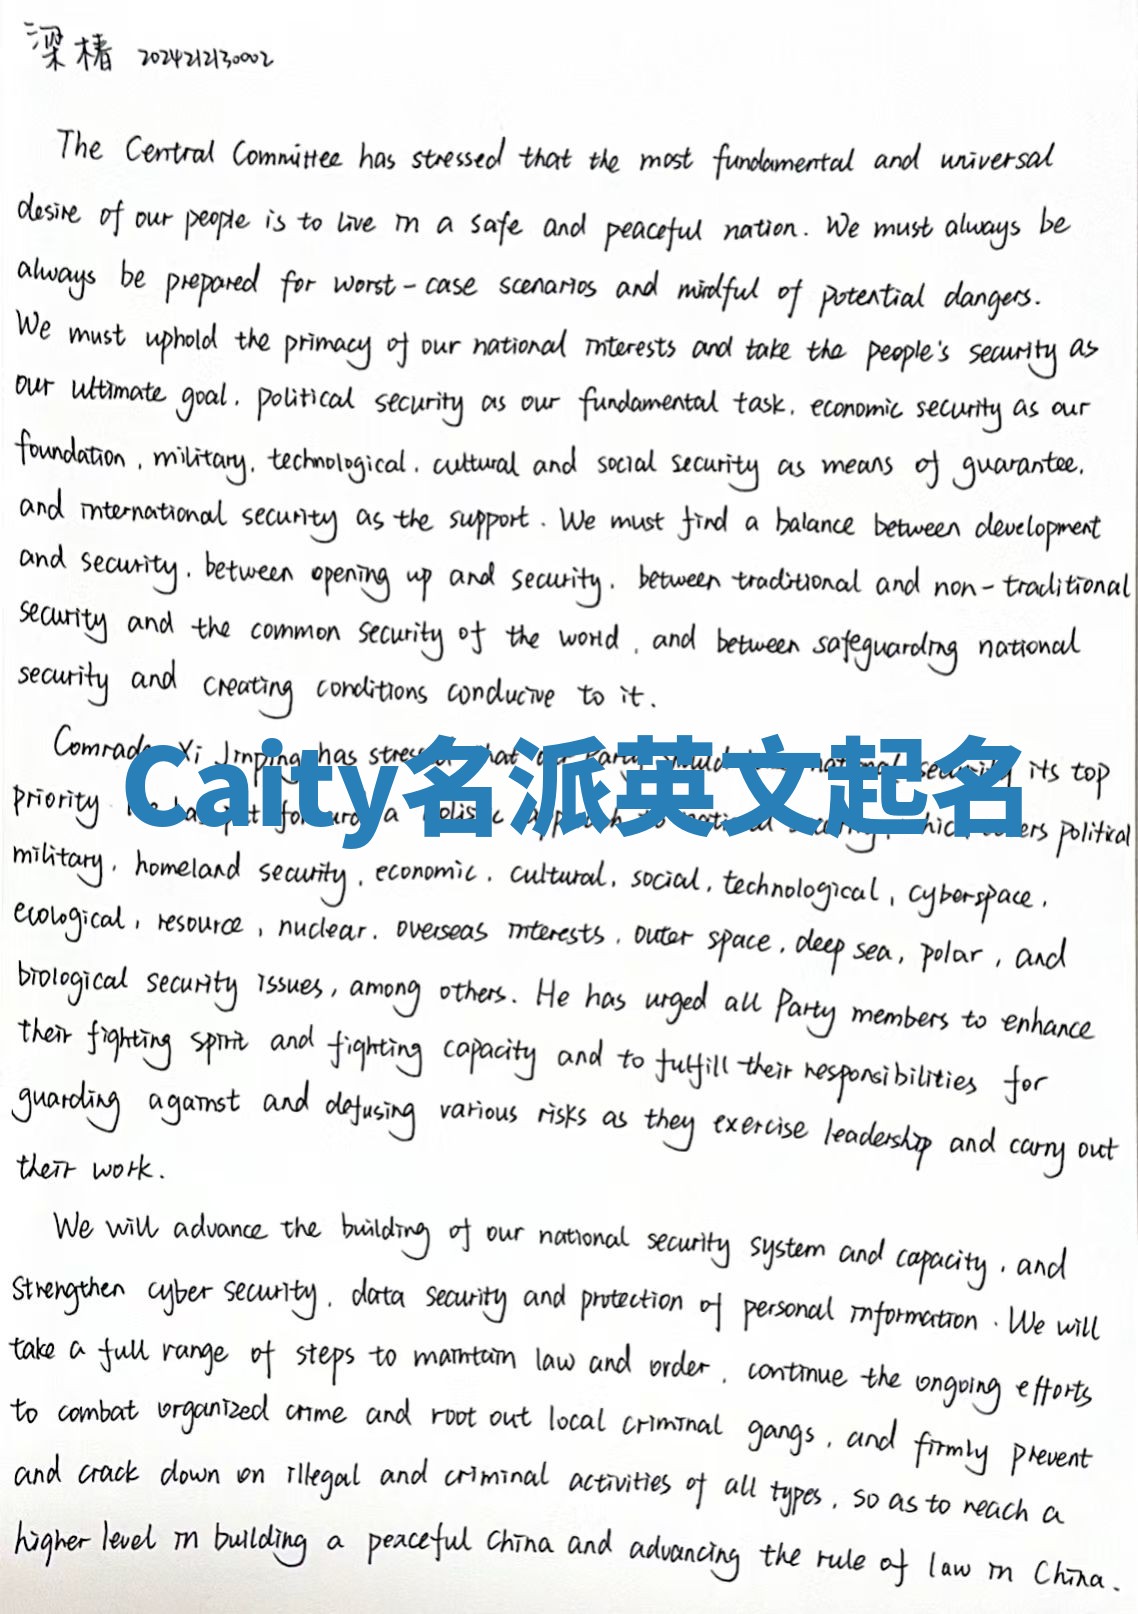 梁椿 2024212130002
The Central Committee has stressed that the most fundamental and universal
desire of our people is to live in a safe and peaceful nation. We must always be
always be prepared for worst-case scenarios and mindful of potential dangers.
We must uphold the primacy of our national interests and take the people's security as
our ultimate goal, political security as our fundamental task, economic security as our
foundation, military, technological, cultural and social security as means of guarantee,
and international security as the support. We must find a balance between development
and security, between opening up and security, between traditional and non-traditional
security and the common security of the world, and between safeguarding national
security and creating conditions conducive to it.
Comrade Xi Jinping has stressed that our Party should national security its top
Caity名派英文起名
priority has put forward a holistic approach to national security, which covers political
military, homeland security, economic, cultural, social, technological, cyberspace,
ecological, resource, nuclear, overseas interests, outer space, deep sea, polar, and
biological security issues, among others. He has urged all Party members to enhance
their fighting spirit and fighting capacity and to fulfill their responsibilities for
guarding against and defusing various risks as they exercise leadership and carry out
their work.
We will advance the building of our national security system and capacity, and
strengthen cyber security, data security and protection of personal information. We will
take a full range of steps to maintain law and order, continue the ongoing efforts
to combat organized crime and root out local criminal gangs, and firmly prevent
and crack down on illegal and criminal activities of all types, so as to reach a
higher level in building a peaceful China and advancing the rule of law in China.